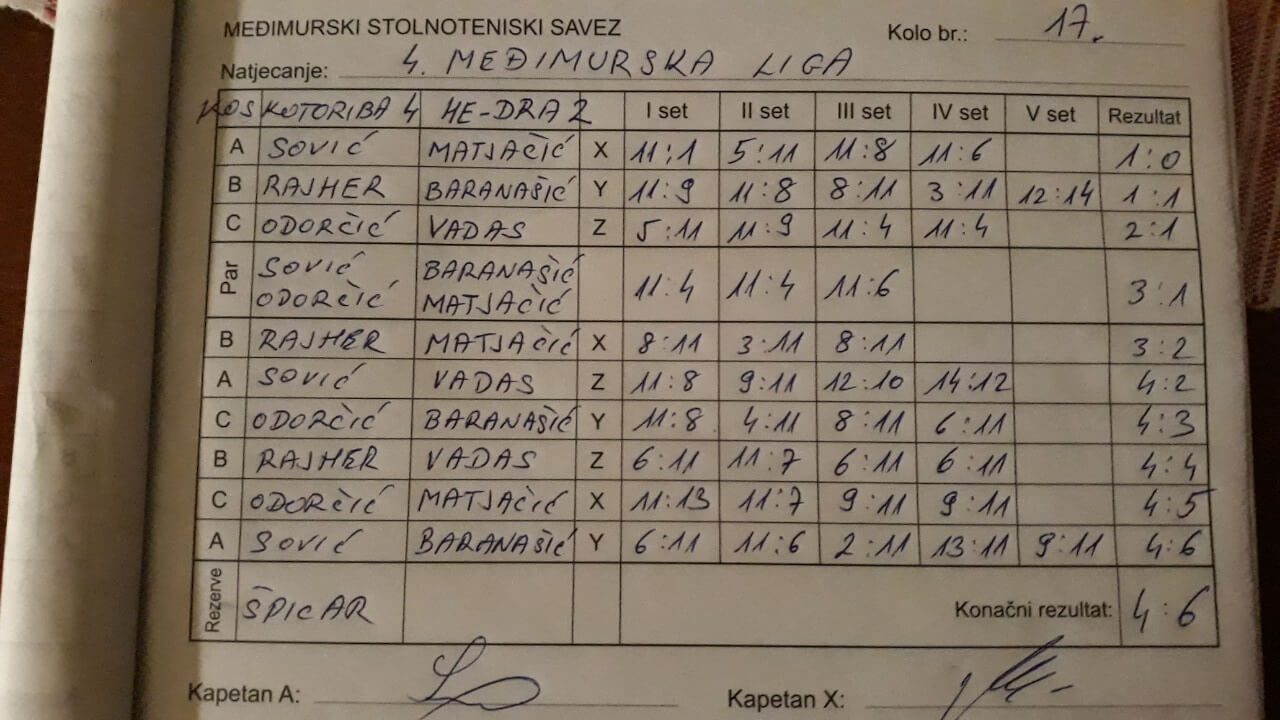 MEĐIMURSKI STOLNOTENISKI SAVEZ Kolo br.: 17.
Natjecanje: 4. MEĐIMURSKA LIGA
KOS KOTORIBA 4 HE-DRA 2 I set II set III set IV set V set Rezultat
A SOVIĆ MATJAČIĆ X 11:1 5:11 11:8 11:6 1:0
B RAJHER BARANAŠIĆ Y 11:9 11:8 8:11 3:11 12:14 1:1
C ODORČIĆ VADAS Z 5:11 11:9 11:4 11:4 2:1
Par SOVIĆ ODORČIĆ BARANAŠIĆ MATJAČIĆ 11:4 11:4 11:6 3:1
B RAJHER MATJAČIĆ X 8:11 3:11 8:11 3:2
A SOVIĆ VADAS Z 11:8 9:11 12:10 14:12 4:2
C ODORČIĆ BARANAŠIĆ Y 11:8 4:11 8:11 6:11 4:3
B RAJHER VADAS Z 6:11 11:7 6:11 6:11 4:4
C ODORČIĆ MATJAČIĆ X 11:13 11:7 9:11 9:11 4:5
A SOVIĆ BARANAŠIĆ Y 6:11 11:6 2:11 13:11 9:11 4:6
Rezerve ŠPICAR Konačni rezultat: 4:6
Kapetan A: Kapetan X: